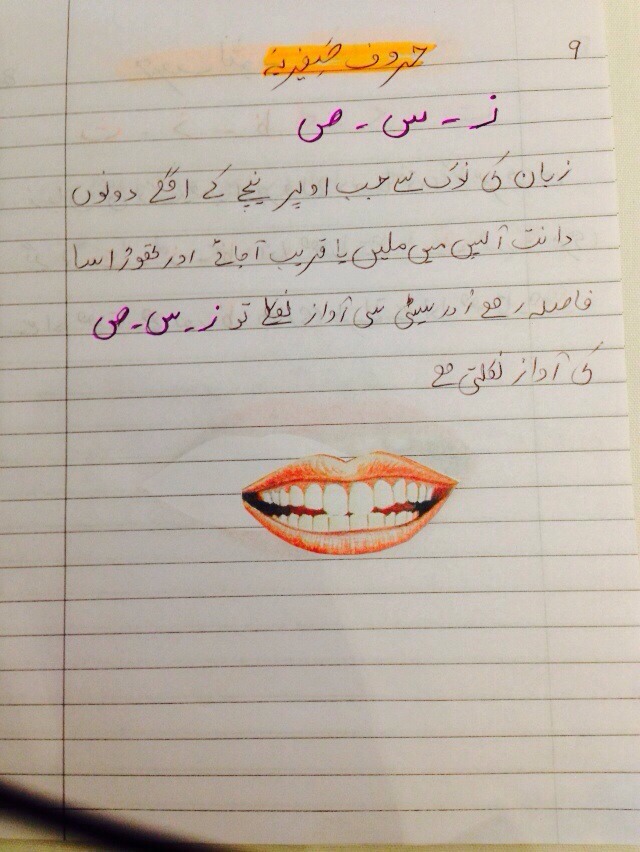 ۹
حروف صفیریہ
ز - س - ص
زبان کی نوک سے جب اوپر نیچے کے اگلے دونوں
دانت آپس میں ملیں یا قریب آجائے اور تھوڑا سا
فاصلہ رہے اور سیٹی سی آواز نکلے تو ز - س - ص
کی آواز نکلتی ہے